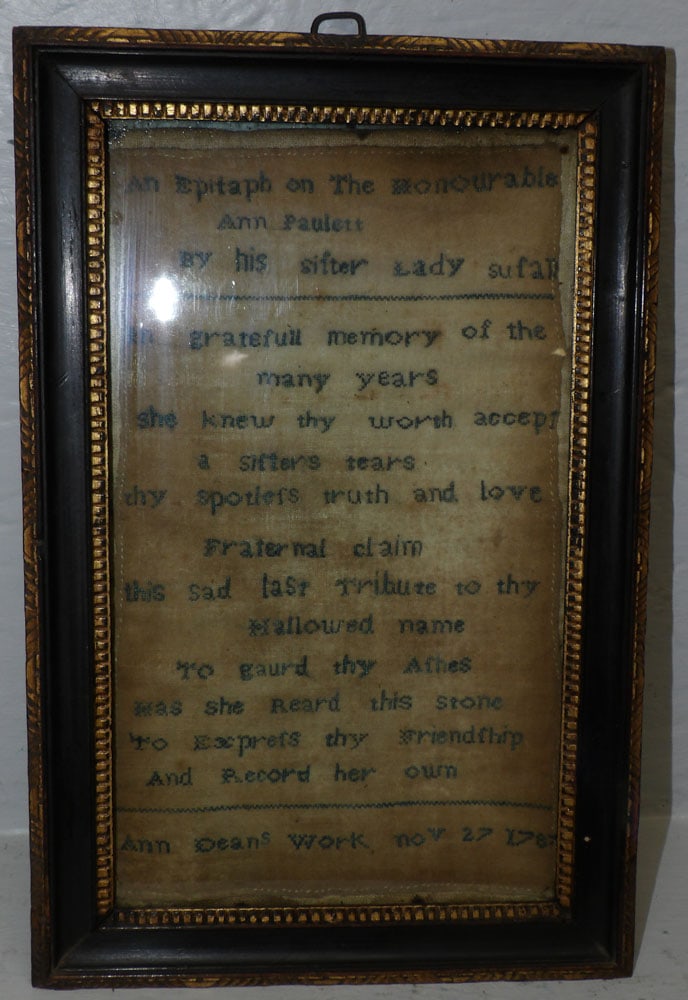 An Epitaph on The Honourable
Ann Paulett
By his sifter Lady sufall
In gratefull memory of the
many years
she knew thy worth accept
a sifters tears
thy spotlefs truth and love
Fraternal claim
this sad last Tribute to thy
Hallowed name
To gaurd thy Afhes
Has she Reard this stone
To Exprefs thy Friendfhip
And Record her own
Ann Deans Work nov 27